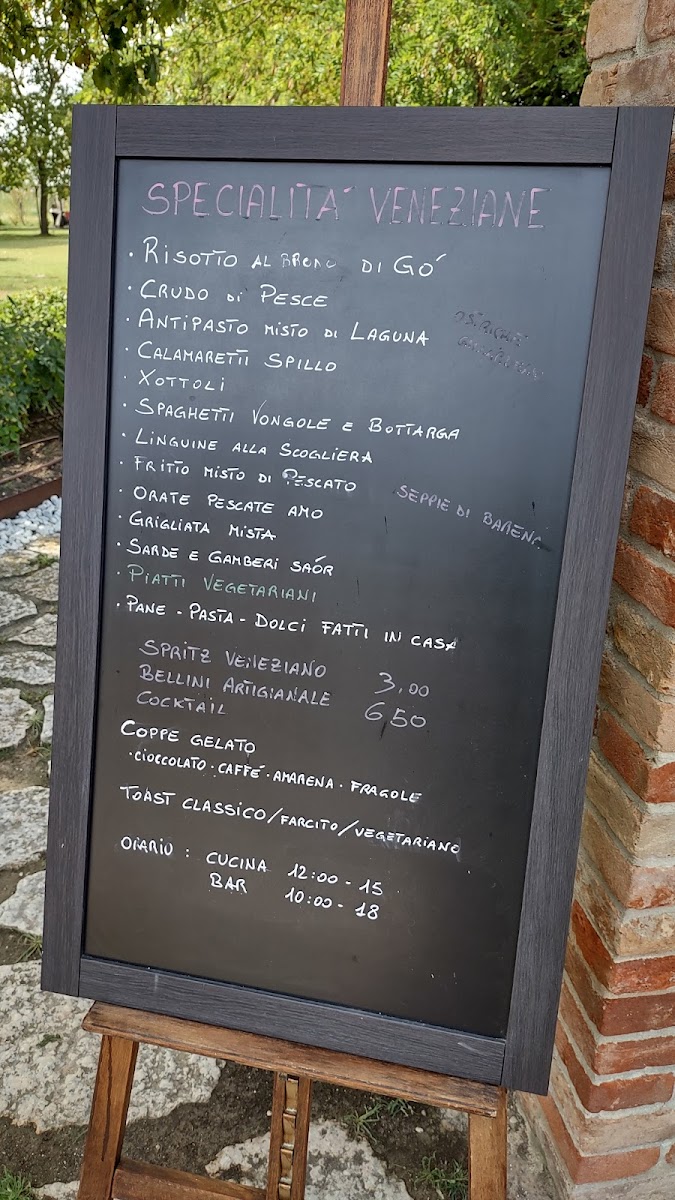 SPECIALITA' VENEZIANE
· RISOTTO AL BRODO DI GO'
· CRUDO DI PESCE
· ANTIPASTO MISTO DI LAGUNA
· CALAMARETTI SPILLO
· XOTTOLI
· SPAGHETTI VONGOLE E BOTTARGA
· LINGUINE ALLA SCOGLIERA
· FRITTO MISTO DI PESCATO
SEPPIE DI BARENA
· ORATE PESCATE AMO
· GRIGLIATA MISTA
· SARDE E GAMBERI SAÓR
· PIATTI VEGETARIANI
· PANE - PASTA - DOLCI FATTI IN CASA
SPRITZ VENEZIANO 3,00
BELLINI ARTIGIANALE 6 50
COCKTAIL
COPPE GELATO
· CIOCCOLATO · CAFFE' · AMARENA · FRAGOLE
TOAST CLASSICO/FARCITO/VEGETARIANO
ORARIO : CUCINA 12:00 - 15
BAR 10:00 - 18